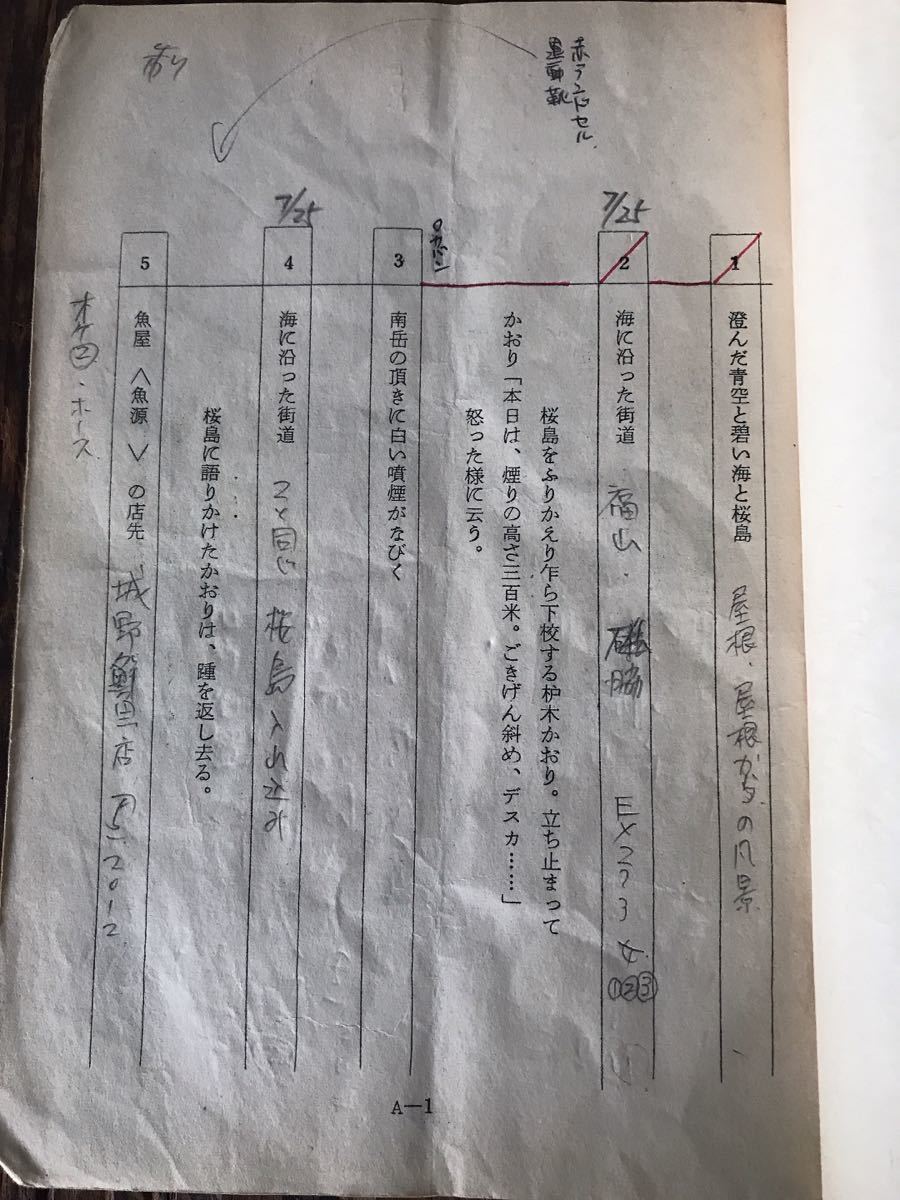 赤ランドセル
運動靴
1 澄んだ青空と碧い海と桜島 屋根、屋根からの風景
7/25
2 海に沿った街道 福山 磯脇 EX
①②③
桜島をふりかえり乍ら下校する枦木かおり。立ち止まって
かおり「本日は、煙りの高さ三百米。ごきげん斜め、デスカ……」
怒った様に云う。
カバン
3 南岳の頂きに白い噴煙がなびく
7/25
4 海に沿った街道 2と同じ 桜島入れ込み
桜島に語りかけたかおりは、踵を返し去る。
5 魚屋〈魚源〉の店先 城野鮮魚店 2012
オケ②・ホース
A—1